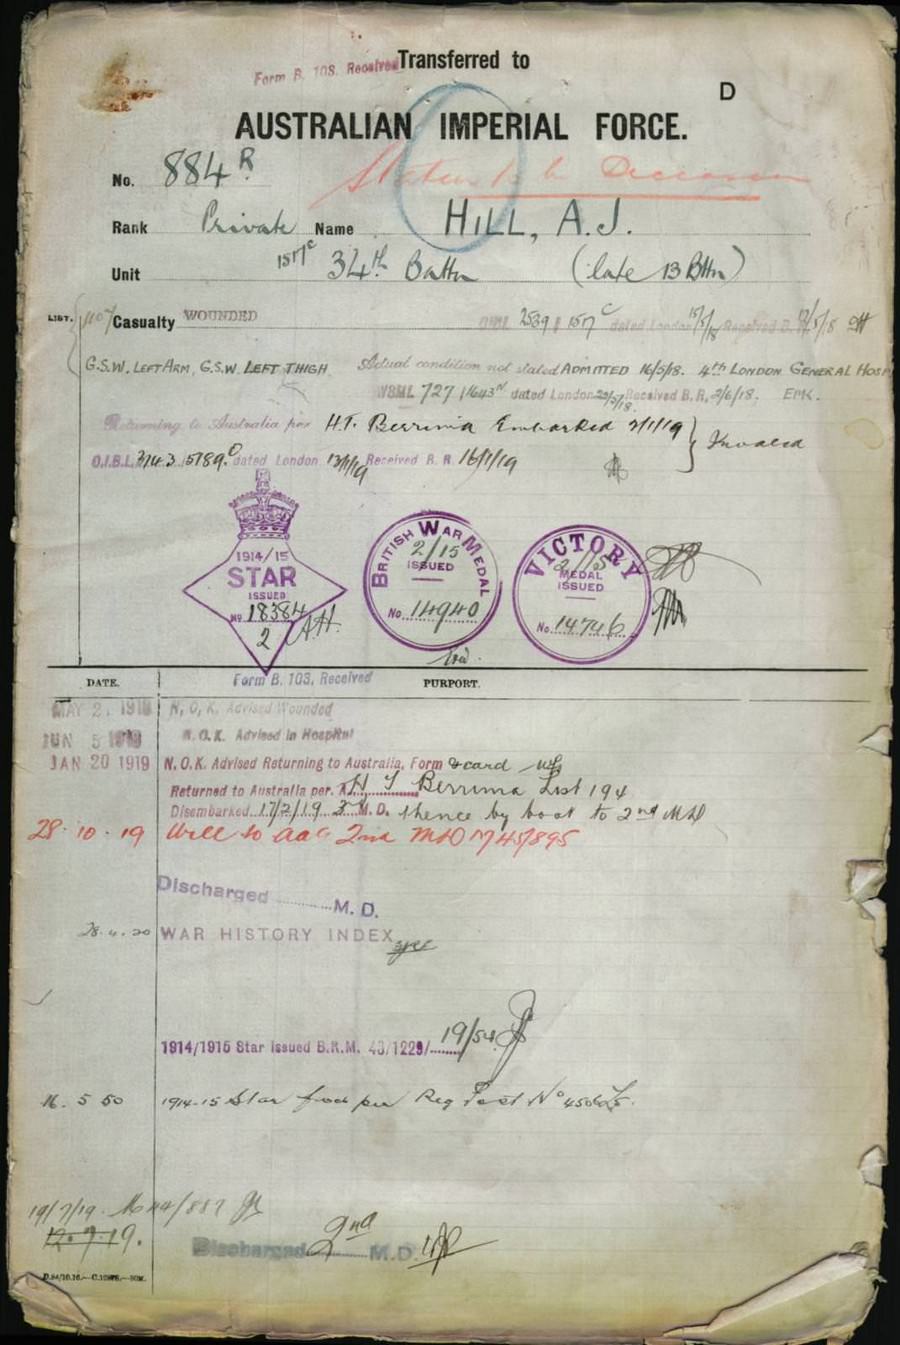 Form B. 103. Received
Transferred to
D
AUSTRALIAN IMPERIAL FORCE.
No. 884 R
Rank Private Name HILL, A.J.
Unit 34th Battn (late 13 Bttn)
LIST. Casualty WOUNDED 2539 157 C dated London 15/5/18 Received B.R.
G.S.W. LEFT ARM, G.S.W. LEFT THIGH Actual condition not stated ADMITTED 16/5/18. 4th LONDON GENERAL HOSP
WSML 727 1643N dated London Received B.R. 2/6/18. EMK.
Returning to Australia per H.T. Berrima Embarked 2/1/19 } Invalid
O.I.B.L. 5789 dated London 13/1/19 Received B.R. 16/1/19
1914/15
STAR
ISSUED
No 18384
2
BRITISH WAR MEDAL
2/15
ISSUED
No. 14940
VICTORY
2/15
MEDAL
ISSUED
No. 14746
DATE.
Form B. 103, Received
PURPORT.
MAY 2. 1918 N.O.K. Advised Wounded
JUN 5 1918 N.O.K. Advised in Hospital
JAN 20 1919 N.O.K. Advised Returning to Australia, Form & card
Returned to Australia per. H T Berrima List 194
Disembarked 17/2/19 3 M.D. thence by boat to 2nd MD
28.10.19 Will to AAG 2nd MD
Discharged M.D.
28.4.20 WAR HISTORY INDEX
1914/1915 Star Issued B.R.M. 43/1229/ 19/54
16.5.50 1914-15 Star per Reg Post No
19/7/19.
12.7.19.
Discharged 2nd M.D.